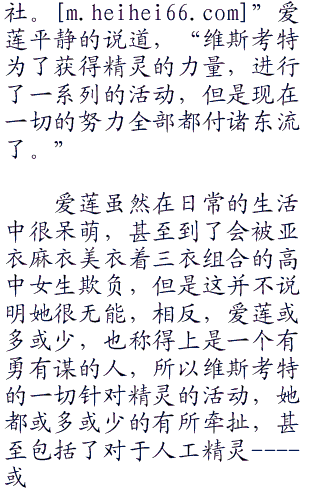 社。[m.heihei66.com]”爱
莲平静的说道，“维斯考特
为了获得精灵的力量，进行
了一系列的活动，但是现在
一切的努力全部都付诸东流
了。”
爱莲虽然在日常的生活
中很呆萌，甚至到了会被亚
衣麻衣美衣着三衣组合的高
中女生欺负，但是这并不说
明她很无能，相反，爱莲或
多或少，也称得上是一个有
勇有谋的人，所以维斯考特
的一切针对精灵的活动，她
都或多或少的有所牵扯，甚
至包括了对于人工精灵----
或